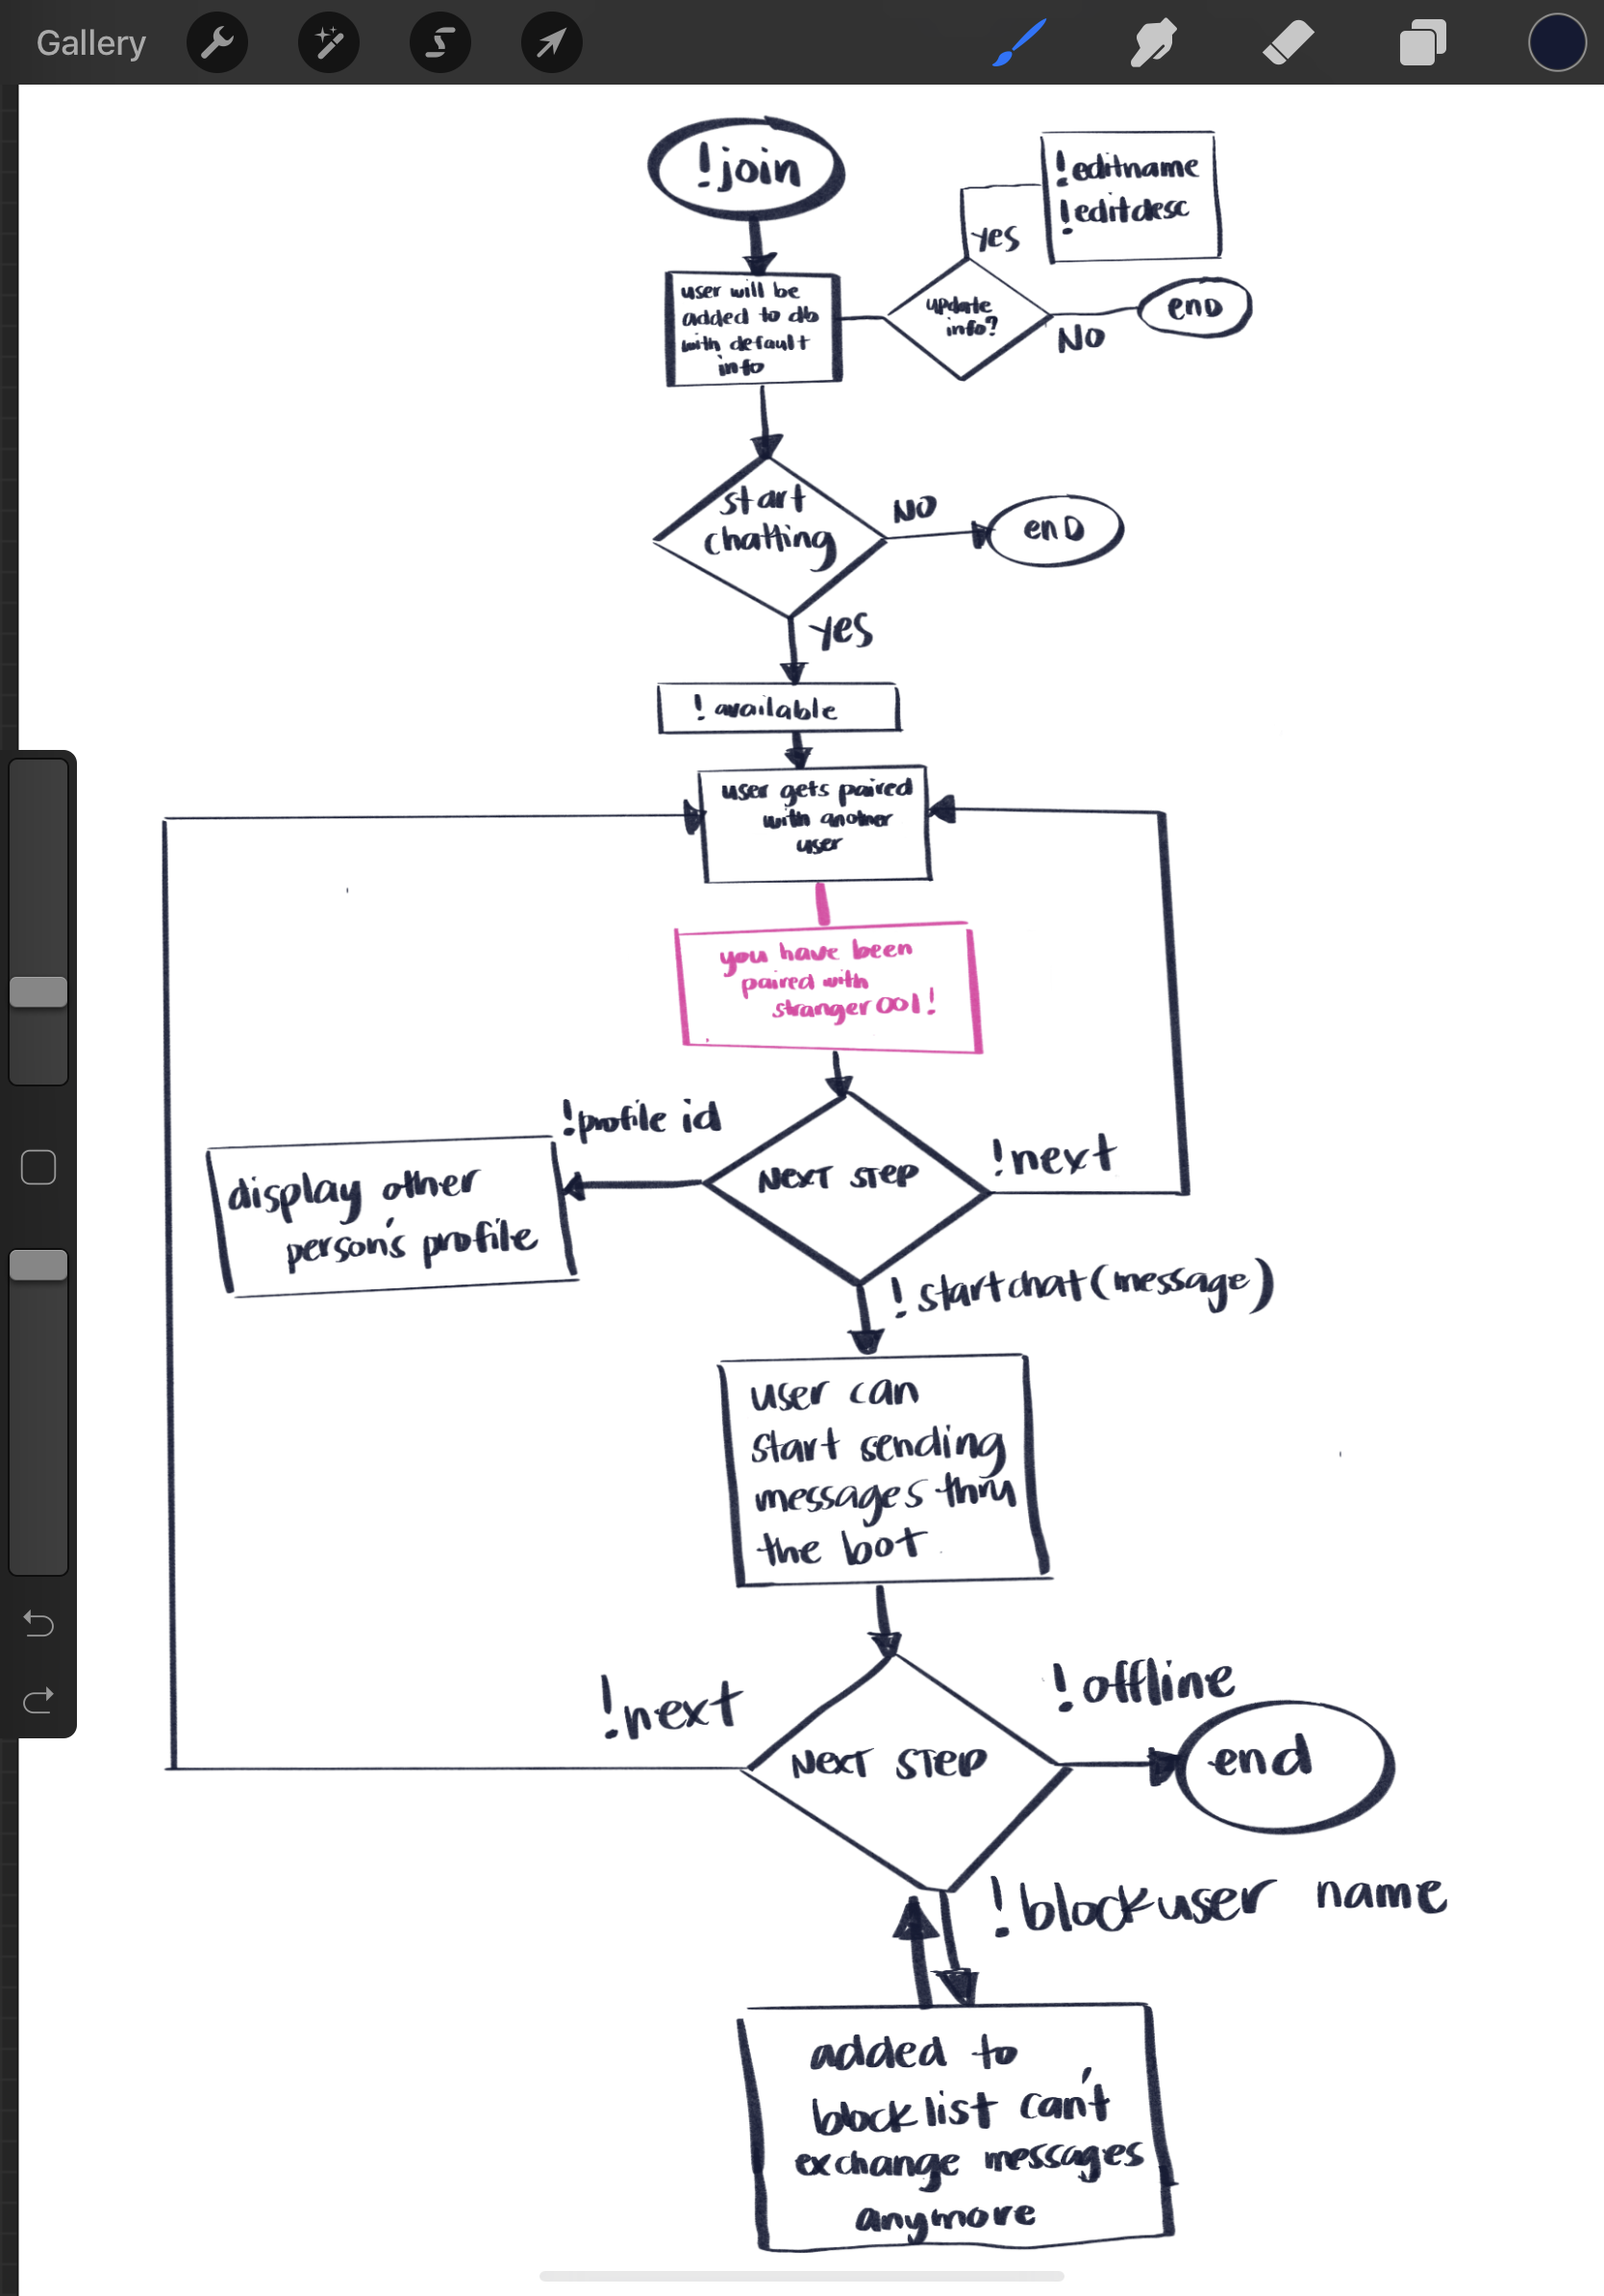 Gallery
!join
!editname
!editdesc
yes
user will be
added to db
with default
info
update
info?
NO
enD
start
chatting
NO
enD
yes
! available
user gets paired
with another
user
you have been
paired with
stranger001!
!profile id
display other
person's profile
NEXT STEP
!next
!startchat(message)
user can
start sending
messages thru
the bot
!next
NEXT STEP
!offline
end
!blockuser name
added to
blocklist can't
exchange messages
anymore